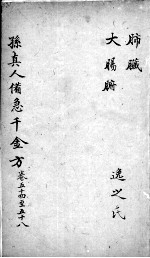 肺臟
大腸腑
逸之氏
孫真人備急千金方 卷五十四至五十八